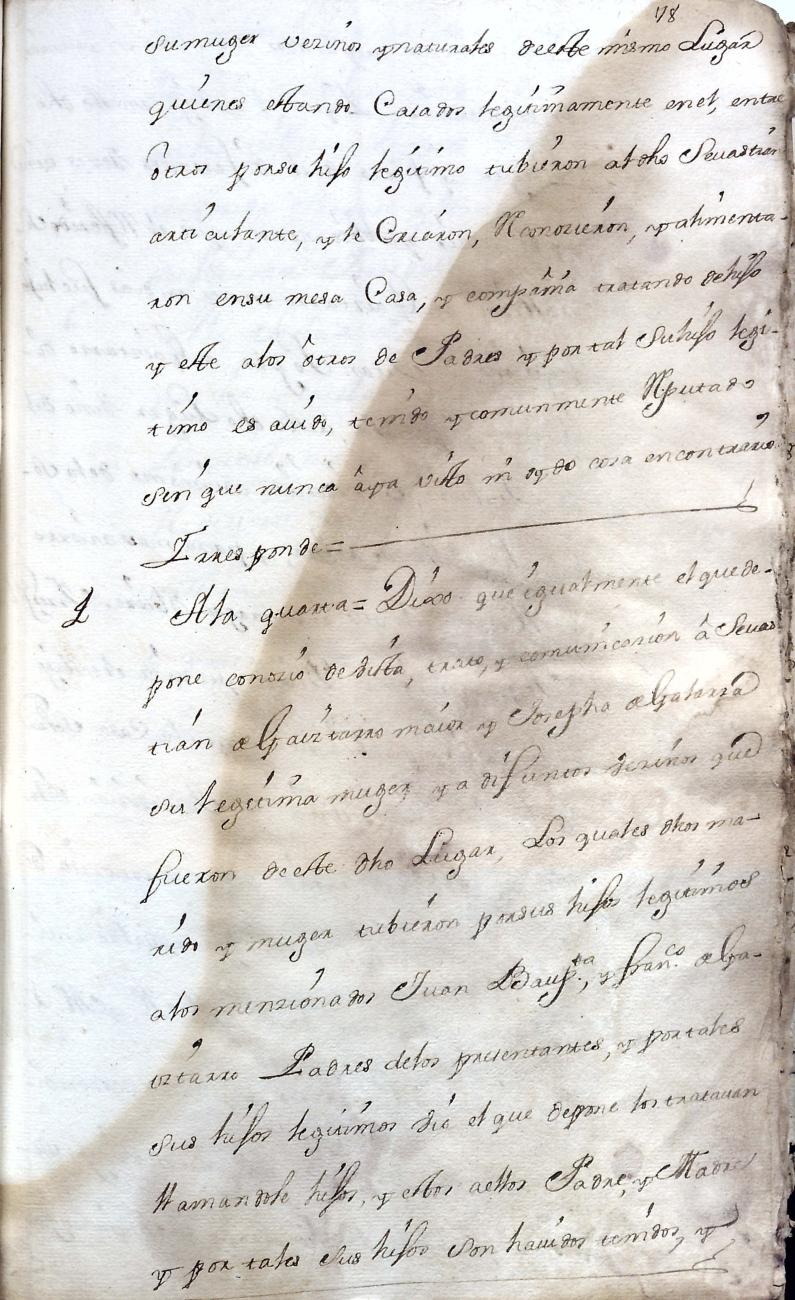 78
su muger vezinos y naturales de este mismo Lugar
quienes estando Casados legitimamente en el, entre
otros por su hijo legitimo tubieron al dho Sevastian
articulante, y le Criaron, Reconozieron, y alimenta-
ron en su mesa Casa, y compañia tratando de hijo
y este a los otros de Padres y por tal su hijo legi-
timo es auido, tenido y comunmente Reputado
sin que nunca aya visto ni oydo cosa en contrario
Y rresponde=
4 A la quarta= Dixo que igualmente el que de-
pone conozió de vista, trato, y comunicazion â Sevas
tian de Gaiztarro maior y Josepha de Galarza
su legitima muger ya difuntos vezinos que
fueron de este dho Lugar, Los quales dhos ma-
rido y muger tubieron por sus hijos legitimos
a los menzionados Juan Baup.ta, y fran.co de Ga-
iztarro Padres de los presentantes, y por tales
sus hijos legitimos vió el que depone los tratauan
llamandole hijos, y estos aellos Padre, y Madre
y por tales sus hijos son hauidos tenidos, y